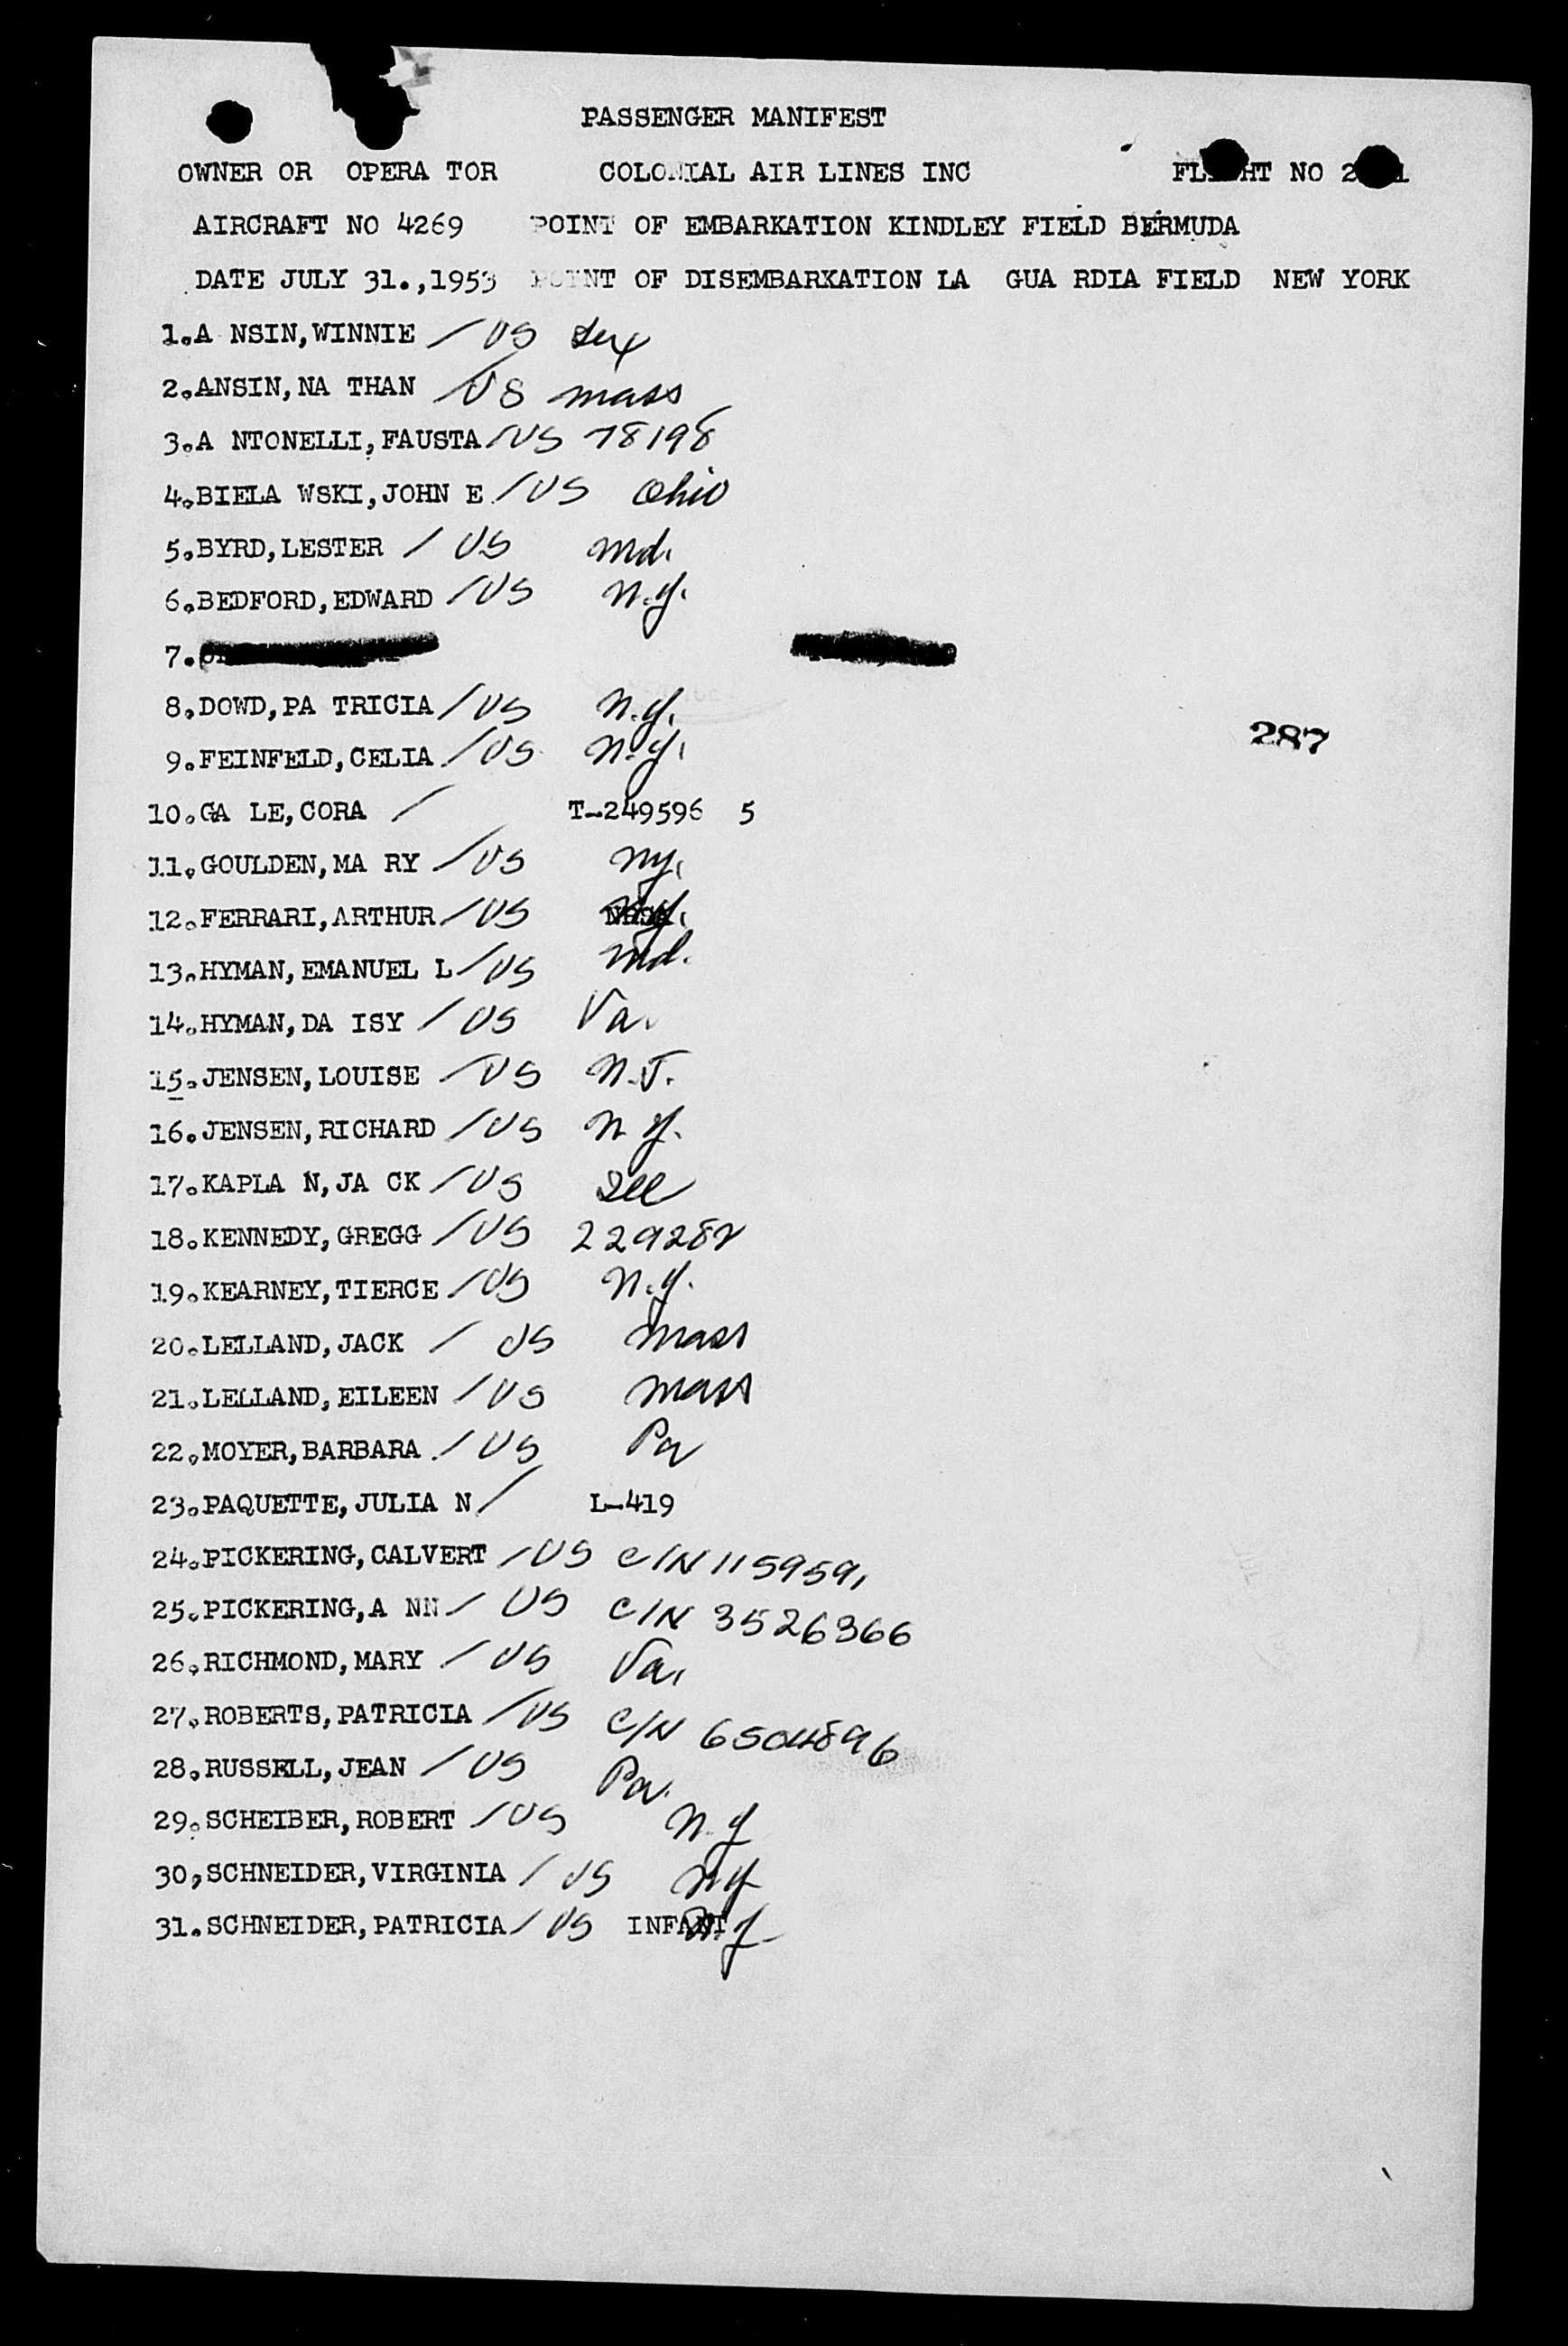 PASSENGER MANIFEST
OWNER OR OPERA TOR COLONIAL AIR LINES INC NO
AIRCRAFT NO 4269 POINT OF EMBARKATION KINDLEY FIELD BERMUDA
DATE JULY 31.,1953 POINT OF DISEMBARKATION LA GUA RDIA FIELD NEW YORK
1.A NSIN,WINNIE / US
2.ANSIN,NA THAN / US mass
3.A NTONELLI,FAUSTA / US 78198
4.BIELA WSKI,JOHN E / US Ohio
5.BYRD,LESTER / US md.
6.BEDFORD,EDWARD / US n.y.
7.
8.DOWD,PA TRICIA / US n.y.
287
9.FEINFELD,CELIA / US n.y.
10.GA LE,CORA / T-249596 5
11.GOULDEN,MA RY / US ny.
12.FERRARI,ARTHUR / US
13.HYMAN,EMANUEL L / US md.
14.HYMAN,DA ISY / US Va.
15.JENSEN,LOUISE / US N.J.
16.JENSEN,RICHARD / US n.y.
17.KAPLA N,JA CK / US
18.KENNEDY,GREGG / US 229282
19.KEARNEY,TIERCE / US n.y.
20.LELLAND,JACK / US mass
21.LELLAND,EILEEN / US mass
22.MOYER,BARBARA / US Pa
23.PAQUETTE,JULIA N / L-419
24.PICKERING,CALVERT / US C/N 115959,
25.PICKERING,A NN / US C/N 3526366
26.RICHMOND,MARY / US Va.
27.ROBERTS,PATRICIA / US C/N 6504896
28.RUSSELL,JEAN / US Pa.
29.SCHEIBER,ROBERT / US n.y
30,SCHNEIDER,VIRGINIA / US ny
31.SCHNEIDER,PATRICIA / US INFANT n.y